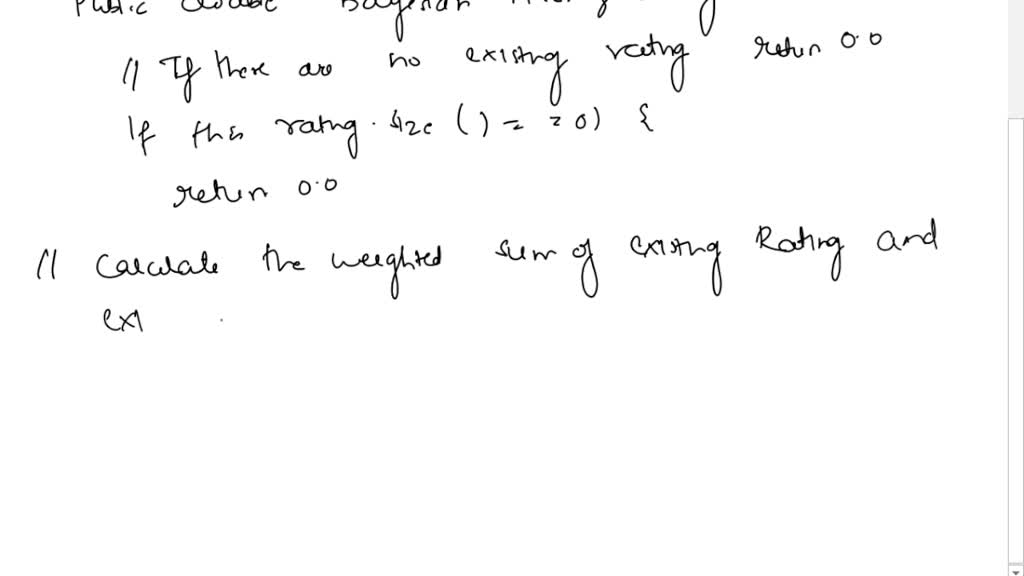 Public double Bayesian
// If there are no existing rating return 0.0
If this rating. size () = = 0) {
return 0.0
// Calculate the weighted sum of existing Rating and
exi